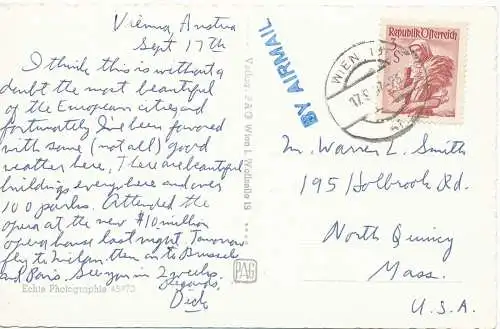 Vienna, Austria
Sept 17th
I think this is without a
doubt the most beautiful
of the European cities and
fortunately I've been favored
with some (not all) good
weather here. There are beautiful
buildings everywhere and over
100 parks. Attended the
opera at the new $10 million
opera house last night. Tomorrow
fly to Milan, then on to Brussels
and Paris. See you in 2 weeks.
Regards,
Dick
Echte Photographie 45973
Verlag: P A G Wien I, Wollzeile 19
PAG
BY AIRMAIL
WIEN
17.9.
Republik Österreich
3
S
Mr. Warren L. Smith
195 Holbrook Rd.
North Quincy
Mass.
U.S.A.